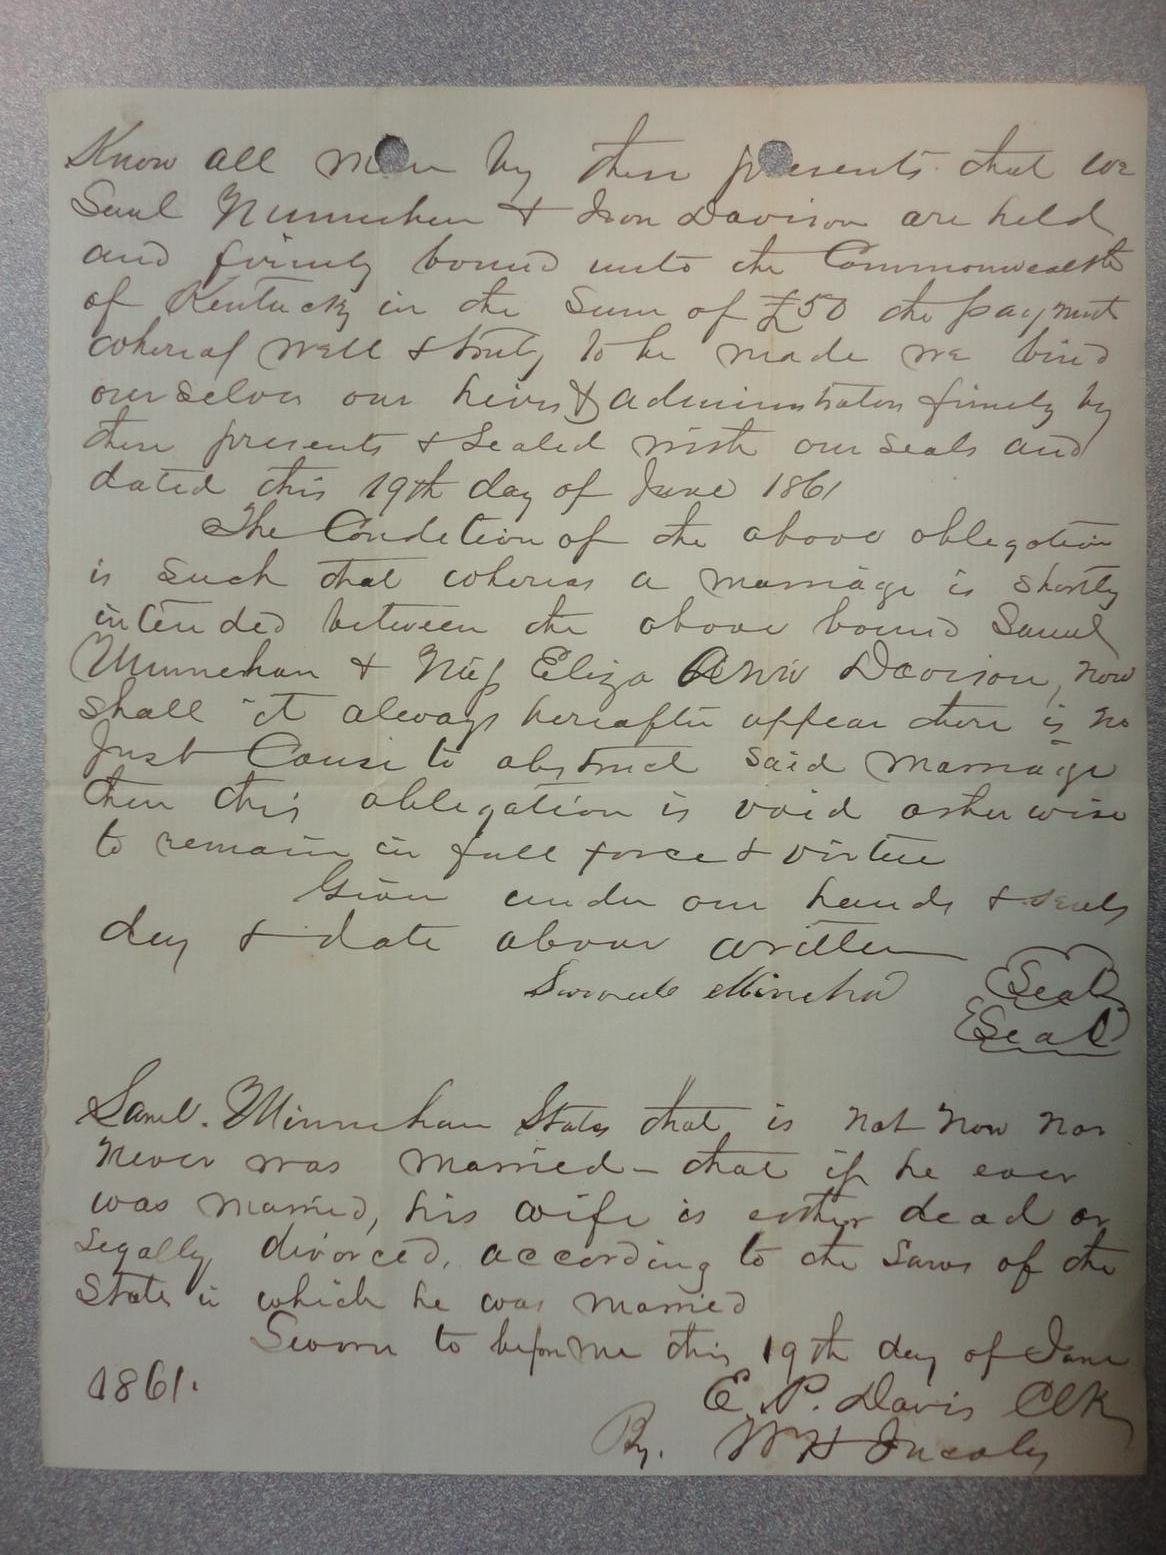 Know all men by these presents that we
Saml Minnehan & Davison are held
and firmly bound unto the Commonwealth
of Kentucky in the sum of £50 the payment
whereof well & truly to be made we bind
ourselves our heirs & administrators firmly by
these presents & sealed with our seals and
dated this 19th day of June 1861
The Condition of the above obligation
is such that whereas a marriage is shortly
intended between the above bound Samul
Minnehan & Miss Eliza Ann Davison, now
shall it always hereafter appear there is no
Just Cause to obstruct said marriage
then this obligation is void otherwise
to remain in full force & virtue
Given under our hands & seals
day & date above written
Seal
Seal
Saml. Minnehan States that is not now nor
never was married - that if he ever
was married, his wife is either dead or
legally divorced, according to the laws of the
State in which he was married
Sworn to before me this 19th day of June
1861.
E. P. Davis Clk
By. W H